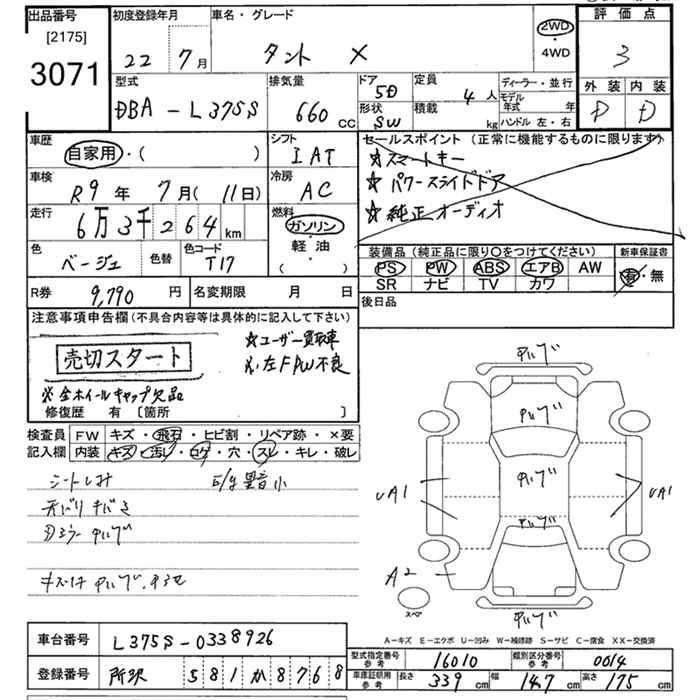 出品番号
[2175]
3071
初度登録年月
22 7月
車名・グレード
タント X
2WD
・
4WD
評価点
3
外装 内装
D D
型式
DBA-L375S
排気量
660 CC
ドア 5D
形状 SW
定員 4人
積載 kg
ディーラー・並行
モデル年式 年
ハンドル 左・右
車歴
自家用・( )
シフト
IAT
セールスポイント(正常に機能するものに限ります)
☆スマートキー
☆パワースライドドア
☆純正オーディオ
車検
R9年 7月(11日)
冷房
AC
走行
6万3千264km
燃料
ガソリン
軽油
・
( )
色
ベージュ
色替
色コード
T17
装備品(純正品に限り○をつけてください)
PS PW ABS エアB AW
SR ナビ TV カワ
新車保証書
有・無
R券 9,790円
名変期限 月 日
後日品
注意事項申告欄(不具合内容等は具体的に記入して下さい)
売切スタート
☆ユーザー買取車
※左F PW不良
※全ホイールキャップ欠品
修復歴 有 [箇所 ]
検査員記入欄
FW キズ・飛石・ヒビ割・リペア跡・×要
内装 キズ・汚レ・コゲ・穴・スレ・キレ・破レ
シートしみ
E/g異音小
UA1
UA1
A2
スペア
A-キズ E-エクボ U-凹み W-補修跡 S-サビ C-腐食 XX-交換済
車台番号 L375S-0338926
登録番号 所沢 581か8768
型式指定番号 参考 16010
類別区分番号 参考 0014
車庫証明用 参考 長さ 339cm 幅 147cm 高さ 175cm